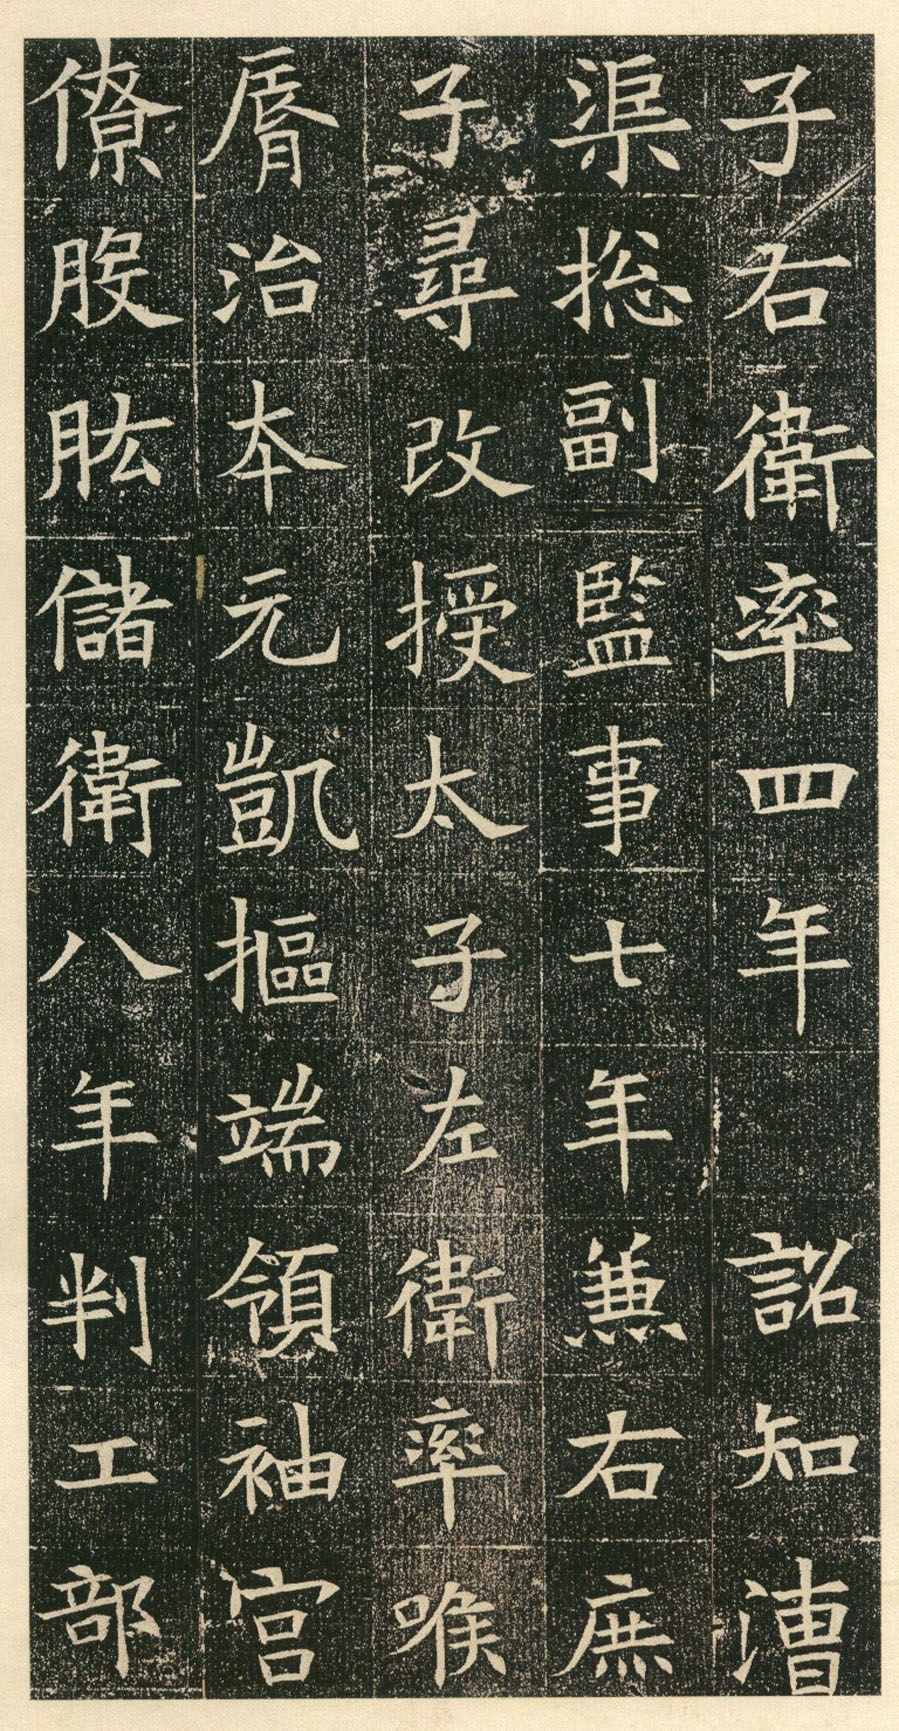 子右衛率四年 詔知漕
渠捴副監事七年兼右庶
子尋改授太子左衛率喉
脣治本元凱摳端領袖宫
僚股肱儲衛八年判工部